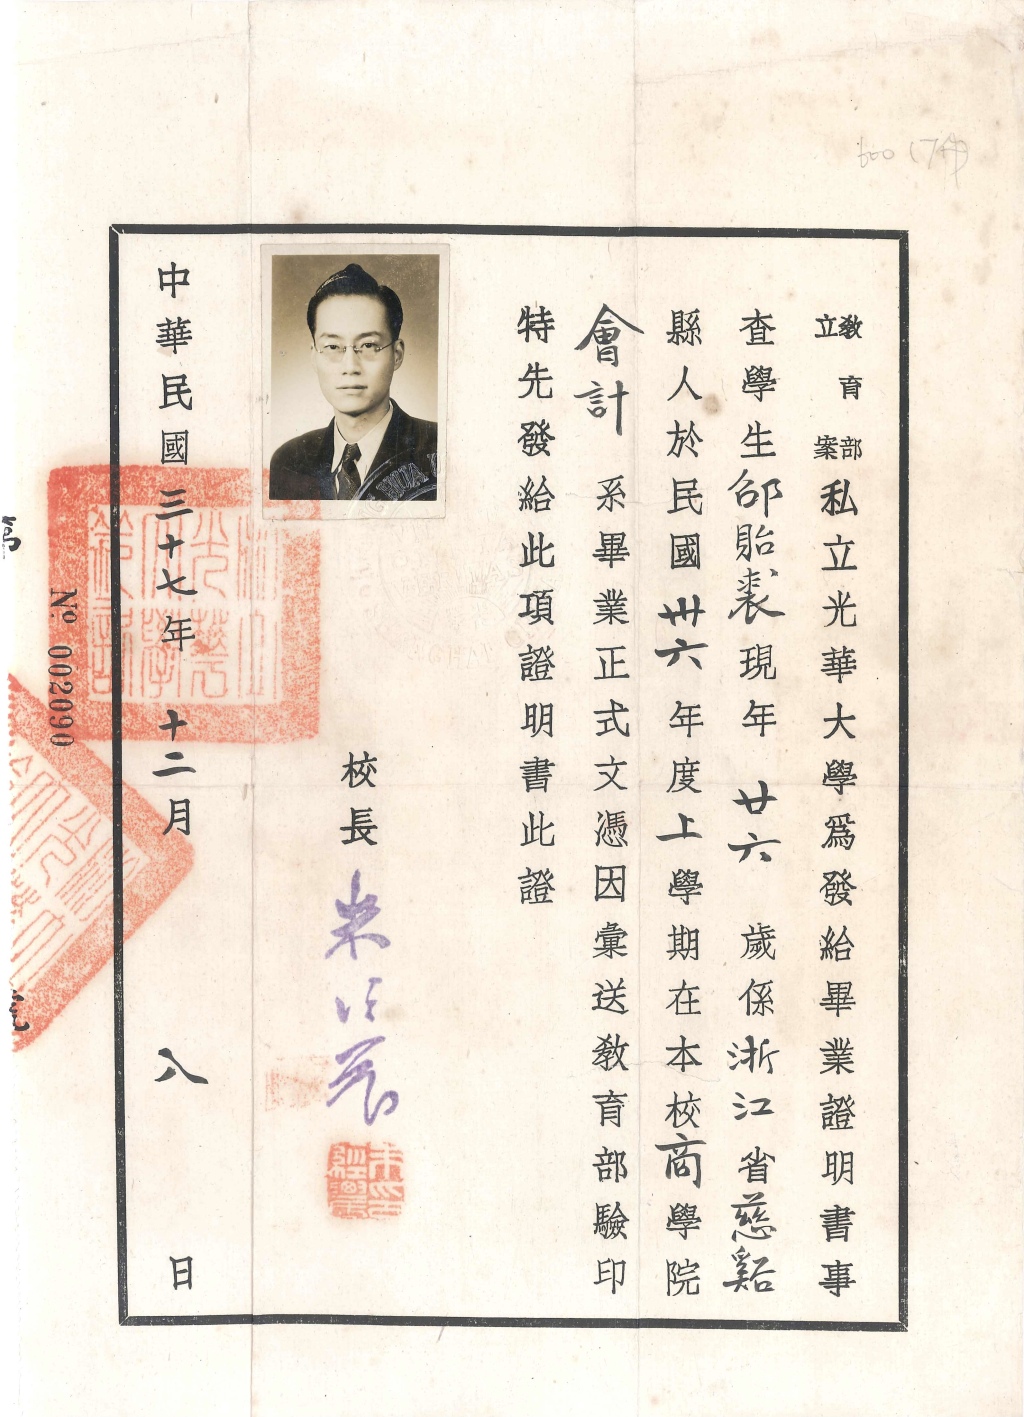 教育部
立案
私立光華大學爲發給畢業證明書事
查學生邵貽裘現年廿六歲係浙江省慈谿
縣人於民國卅六年度上學期在本校商學院
會計系畢業正式文憑因彙送教育部驗印
特先發給此項證明書此證
校長 朱經農
中華民國三十七年十二月八日
No. 002090